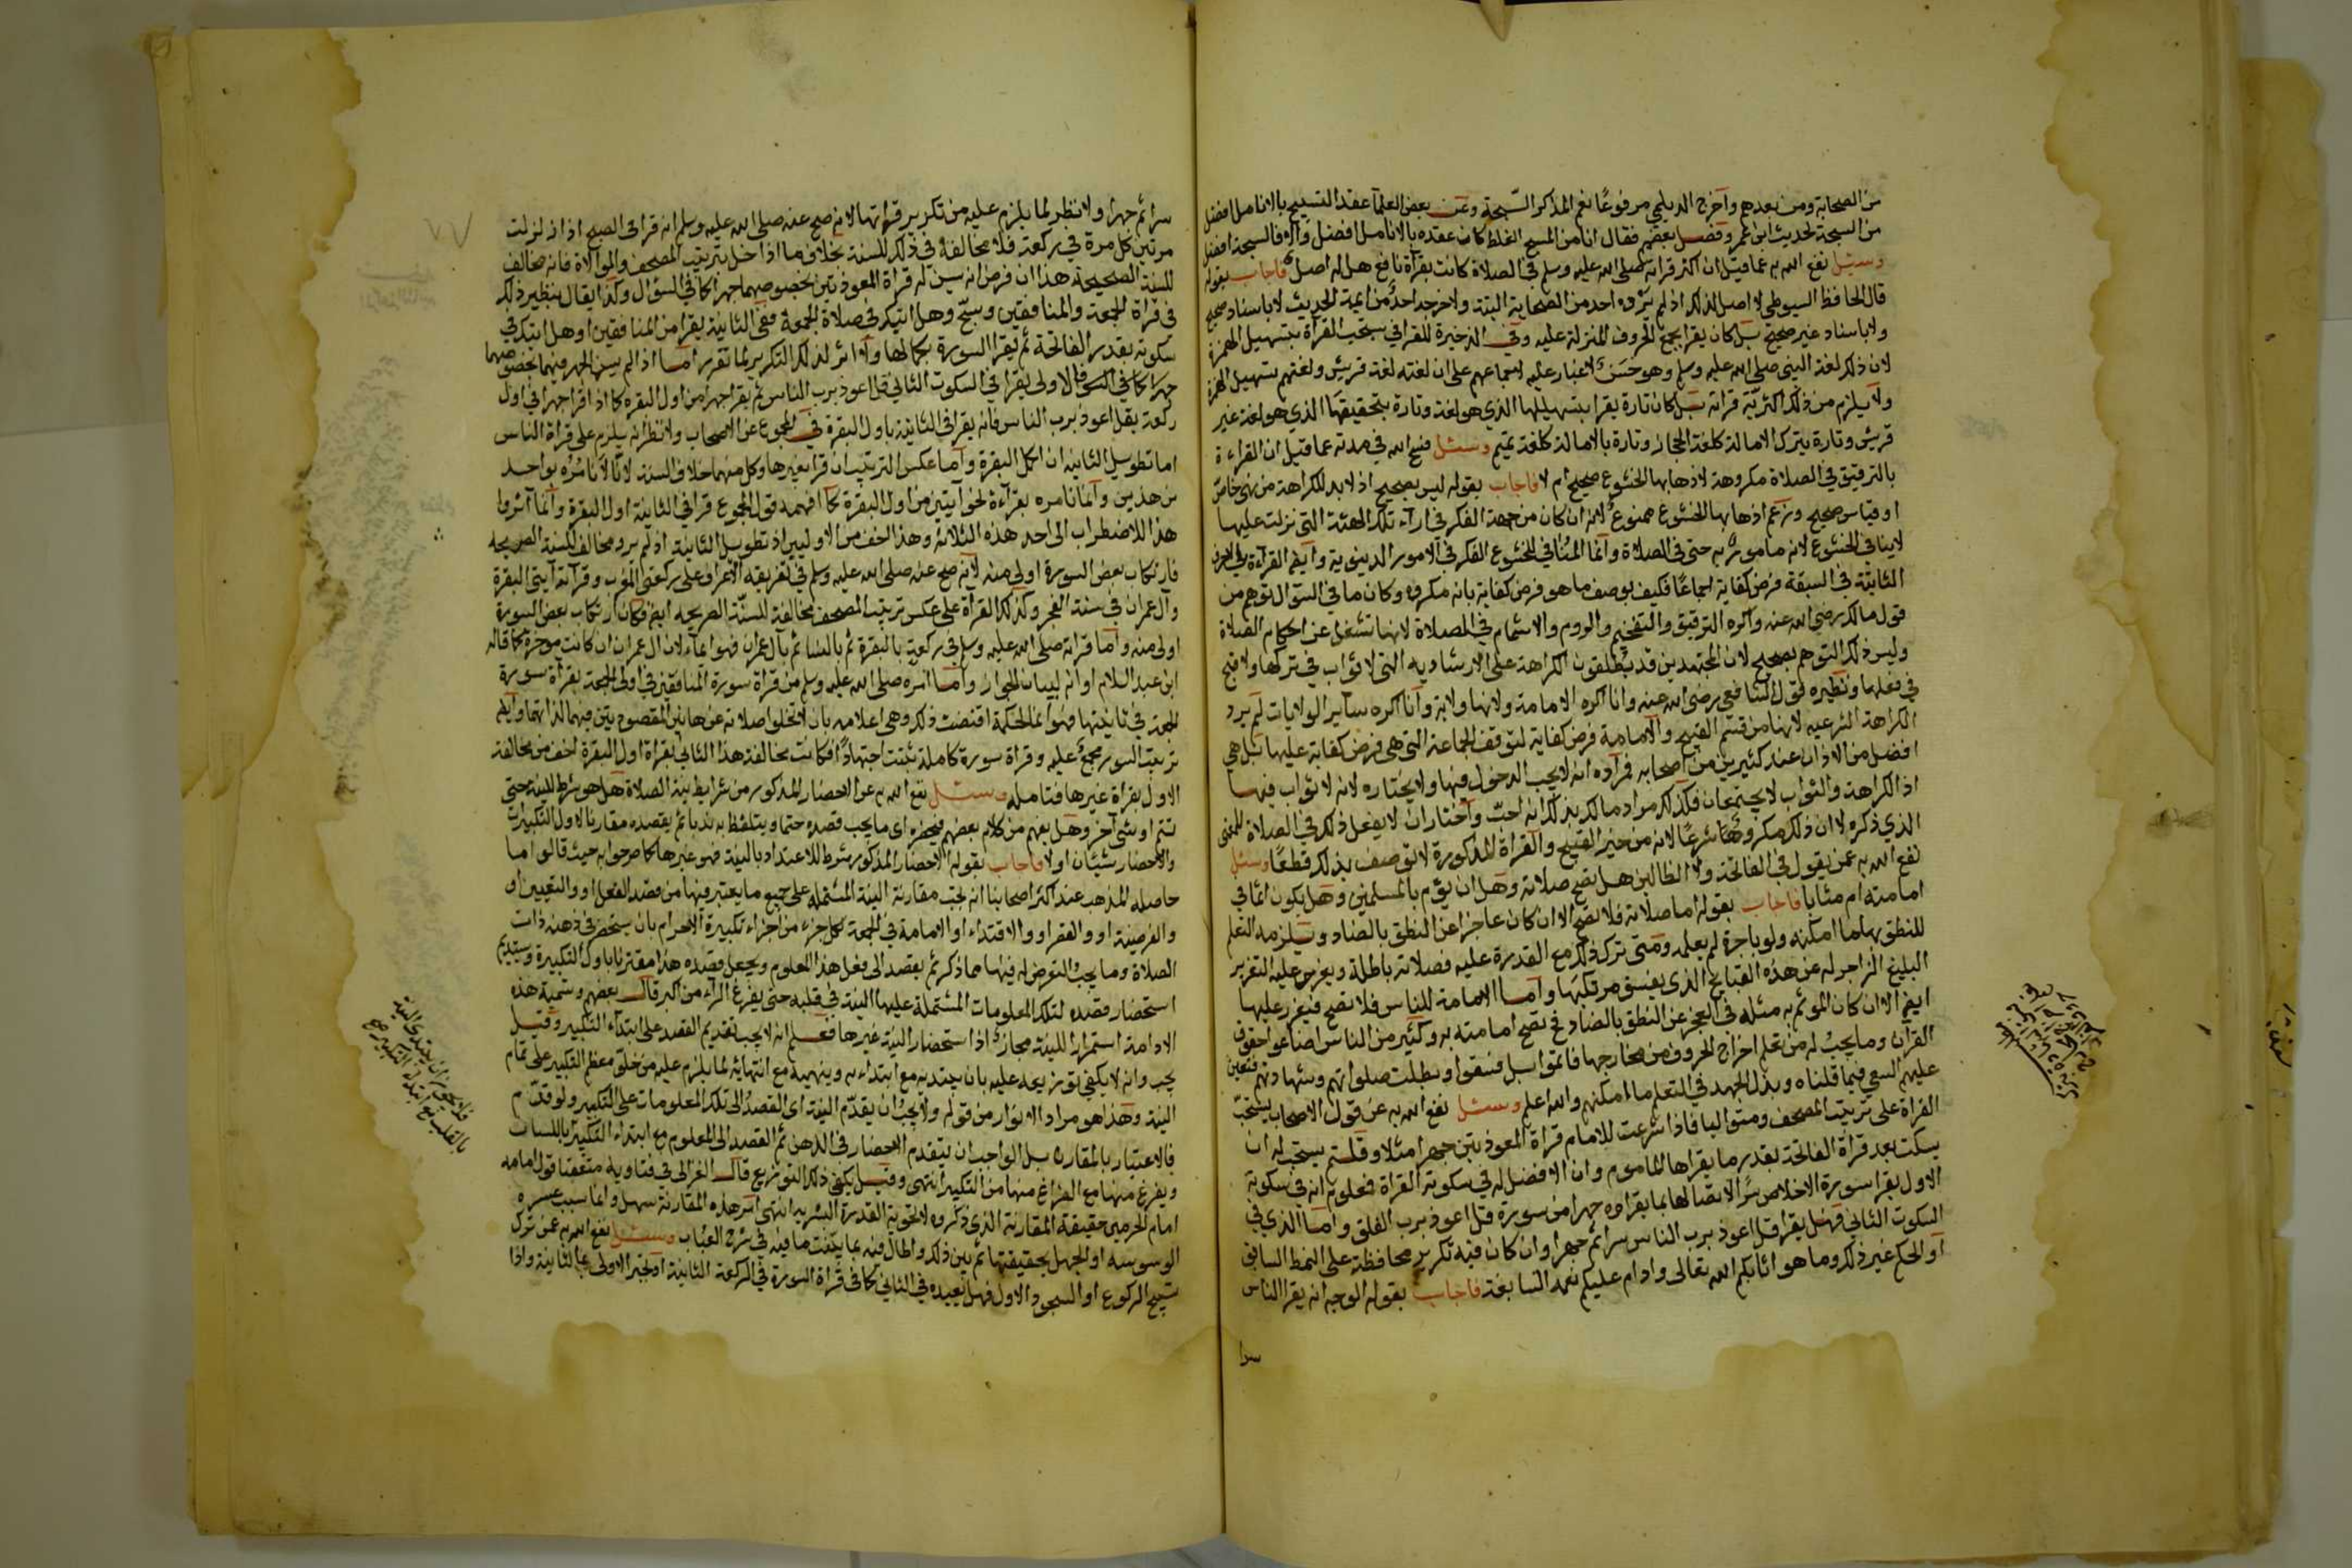 من الصحابة ومن بعدهم وأخرج الديلمي مرفوعًا نعم المذكر السبحة وعن بعض العلما عقد التسبيح بالانامل افضل
من السبحة لحديث ابن عمر وفصل بعضهم فقال ان امن المسبح الغلط كان عقده بالانامل افضل والا فالسبحة افضل
وسئل نفع الله به عما قيل ان اكثر قراته صلى الله عليه وسلم في الصلاة كانت بقرآة نافع هل له اصل فاجاب بقوله
قال الحافظ السيوطي لا اصل لذلك اذ لم يروه احد من الصحابة البتة ولا خرجه احد من ايمة الحديث لا باسناد صحيح
ولا باسناد غير صحيح بل كان يقرا بجميع الحروف المنزلة عليه وفي الذخيرة للقرافي يستحب القرآة بتسهيل الهمزة
لان ذلك لغة النبي صلى الله عليه وسلم وهو حسن لا غبار عليه لاجماعهم على ان لغته لغة قريش ولغتهم تسهيل الهمزة
ولا يلزم من ذلك اكثرية قراته بل كان تارة يقرا بتسهيلها الذي هو لغة وتارة بتحقيقها الذي هو لغة غير
قريش وتارة بترك الامالة كلغة الحجاز وتارة بالامالة كلغة تميم وسئل فسح الله في مدته عما قيل ان القراءة
بالترقيق في الصلاة مكروهة لاذهابها الخشوع صحيح ام لا فاجاب بقوله ليس بصحيح اذ لا بد للكراهة من نهي خاص
او قياس صحيح وزعم اذهابها الخشوع ممنوع لانه ان كان من جهة الفكر في اراء تلك الهيئة التي نزلت عليها
لا ينافي الخشوع لانه مامور به حتى في الصلاة وانما المنافي للخشوع الفكر في الامور الدنيوية وايضا القراءة
الثابتة في السبعة فرض كفاية اجماعًا فكيف يوصف ما هو فرض كفاية بانه مكروه وكان ما في السؤال توهم من
قول مالك رضي الله عنه واكره الترقيق والتفخيم والروم والاشمام في الصلاة لانها تشغل عن احكام الصلاة
وليس ذلك التوهم بصحيح لان المجتهدين قد يطلقون الكراهة على الارشادية التي لا ثواب في تركها ولا قبح
في فعلها ونظيره قول الشافعي رضي الله عنه وانا اكره الامامة ولانها ولاية وانا اكره ساير الولايات لم يرد
الكراهة الشرعية لانها من قسم القبيح والامامة فرض كفاية لتوقف الجماعة التي هي فرض كفاية عليها بل هي
افضل من الاذان عند كثيرين من اصحابه فمراده انه لا يحب الدخول فيها ولا يختاره لانه لا ثواب فيها
اذ الكراهة والثواب لا يجتمعان فكذلك مراد مالك بذلك انه احب واختار ان لا يفعل ذلك في الصلاة للمعنى
الذي ذكره لا ان ذلك مكروها شرعًا لانه من حيز القبيح والقراة المذكورة لا توصف بذلك قطعًا وسئل
نفع الله به عمن يقول في الفاتحة ولا الظالين هل تصح صلاته وهل ان يؤم بالمسلمين وهل يكون اثما في
امامته ام مثابا فاجاب بقوله اما صلاته فلا تصح الا ان كان عاجزا عن النطق بالضاد ويلزمه التعلم
للنطق بها ما امكنه ولو باجرة لم يعلمه ومتى ترك ذلك مع القدرة عليه فصلاته باطلة ويعزر عليه التعزير
البليغ الزاجر له عن هذه القبايح الذي يفسق مرتكبها واما الامامة للناس فلا تصح فيعزر عليها
ايضا الا ان كان المؤتم به مثله في العجز عن النطق بالضاد فح تصح امامته به وكثير من الناس اضاعوا حقوق
القران وما يجب له من تعلم اخراج الحروف من مخارجها فاثموا بل فسقوا وبطلت صلواتهم وشهادتهم فتعين
عليهم السعي فيما قلناه وبذل الجهد في التعلم ما امكنهم والله اعلم وسئل نفع الله به عن قول الاصحاب يستحب
القراة على ترتيب المصحف ومتواليا فاذا شرعت للامام قراة المعوذتين جهرا مثلا وقلتم يستحب له ان
يسكت بعد قراة الفاتحة بقدر ما يقراها المأموم وان الافضل له في سكوته القراة فمعلوم انه في سكوته
الاول يقرا سورة الاخلاص سرًا لاتصالها بما يقراوه جهرا من سورة قل اعوذ برب الفلق واما الذي في
السكوت الثاني فهل يقرا قل اعوذ برب الناس سرا ثم جهرا وان كان فيه تكرير محافظة على النمط السابق
او الحكم غير ذلك وما هو اثابكم الله تعالى وادام عليكم نعمه السابغة فاجاب بقوله الوجه انه يقرا الناس
سرا
سرا ثم جهرا ولا نظر لما يلزم عليه من تكرير قراتها لانه صح عنه صلى الله عليه وسلم انه قرا في الصبح اذا زلزلت
مرتين كل مرة في ركعة فلا مخالفة في ذلك للسنة بخلاف ما اذا اخل بترتيب المصحف والموالاة فانه مخالف
للسنة الصحيحة هذا ان فرض انه سن له قراة المعوذتين بخصوصهما جهرا كما في السؤال وكذا يقال بنظير ذلك
في قراة الجمعة والمنافقين وسبح وهل اتيك في صلاة الجمعة ففي الثانية يقرا من المنافقين او هل اتيك في
سكوته بقدر الفاتحة ثم يقرا السورة بكمالها ولا اثر لذلك التكرير لما تقرر اما اذا لم يسن الجهر فيهما بخصوصهما
جهرا كما في السؤال الاولى يقرا في السكوت الثاني قل اعوذ برب الناس ثم يقرا جهرا من اول البقرة كما اذا قرا جهرا في اول
ركعة بقل اعوذ برب الناس فانه يقرا في الثانية باول البقرة في المجموع عن الاصحاب ولا نظر انه يلزم على قراة الناس
اما تطويل الثانية ان اكمل البقرة واما عكس الترتيب ان قرا بغيرها وكل منهما خلاف السنة لانا لا نامره بواحد
من هذين وانما نامره بقرآءة نحو آيتين من اول البقرة كما افهمه قول المجموع قرا في الثانية اول البقرة وانما آثروا
هذا للاضطراب الى احد هذه الثلاثة وهذا اخف من الاوليين اذ تطويل الثانية اذ لم يرد مخالف للسنة الصريحه
فارتكاب بعض السورة اولى منه لانه صح عنه صلى الله عليه وسلم في تفريقه الاعراف على ركعتي المغرب وقرآته آيتي البقرة
وآل عمران في سنة الفجر وكذلك القرآة على عكس ترتيب المصحف مخالفة للسنة الصريحه ايضا فكان ارتكاب بعض السورة
اولى منه واما قراته صلى الله عليه وسلم في ركعة بالبقرة ثم بالنسا ثم بآل عمران فهو اماء لان ال عمران ان كانت موخرة كما قاله
ابن عبد السلام او انه لبيان الجواز واما امره صلى الله عليه وسلم من قراة سورة المنافقين في اولى الجمعة بقرآة سورة
الجمعة في ثانيتها فهو انما لحكمة اقتضت ذلك وهي اعلامه بان لا تخلوا صلاته عن هاتين المقصودتين فيهما لذاتهما وايضا
ترتيب السور مجمع عليه وقراة سورة كاملة تثبت اجتهادًا فكانت مخالفة هذا الثاني بقراة اول البقرة اخف من مخالفة
الاول بقراة غيرها فتامله وسئل نفع الله به عن الاحضار المذكور من شرايط نية الصلاة هل هو شرط للنية حتى
تتم او شي آخر وهل يفهم من كلام بعضهم فيحضره اى ما يجب قصده حتما ويتلفظ به ندبا ثم يقصده مقارنا لاول التكبيرات
والاحضار شيئان اولا فاجاب بقوله الاحضار المذكور شرط للاعتداد بالنية فهو غيرها كما صرحوا به حيث قالوا ما
حاصله المذهب عند اكثر اصحابنا انه يجب مقارنة النية المشتملة على جميع ما يعتبر فيها من قصد الفعل او والتعيين او
والفرضية او والقصر او والاقتداء او الامامة في الجمعة لكل جزء من اجزاء تكبيرة الاحرام بان يستحضر في ذهنه ذات
الصلاة وما يجب التعرض له فيها مما ذكر ثم يقصد الى فعل هذا المعلوم ويجعل قصده هذا مقترنا باول التكبيرة ويستديم
استحضار قصده لتلك المعلومات المشتملة عليها النية في قلبه حتى يفرغ الراء من اكبر قال بعضهم وتسمية هذه
الادامة استمرارا للنية مجاز اذا استحضار النية غيرها فعلم انه لا يجب تقديم القصد على ابتداء التكبير وقيل
يجب وانه لا يكفي توزيعه عليه بان يبتديه مع ابتداءه وينهيه مع انتهائه لما يلزم عليه من خلو معظم التكبير على تمام
النية وهذا هو مراد الانوار من قوله ولا يجب ان يقدم النية اى القصد الى تلك المعلومات على التكبير ولو قدم
فالاعتبار بالمقارن بل الواجب ان يتقدم الاحضار في الذهن ثم القصد الى المعلوم مع ابتداء التكبير باللسان
ويفرغ منها مع الفراغ منها من التكبير انتهى وقيل يكفي ذلك التوزيع قال الغزالي في فتاويه متعقبا قول امامه
امام الحرمين حقيقة المقارنة الذي ذكروه لا تحويه القدرة البشرية انتهى امر هذه المقارنة سهل وانما سبب عسره
الوسوسه او الجهل بحقيقتها ثم بين ذلك واطال فيه بما بينت ما فيه في شرح العباب وسئل نفع الله به عمن ترك
تسبيح الركوع او السجود الاول فهل يعيده في الثاني كما في قراة السورة في الركعة الثانية او تجبر الاولى بالثانية واذا